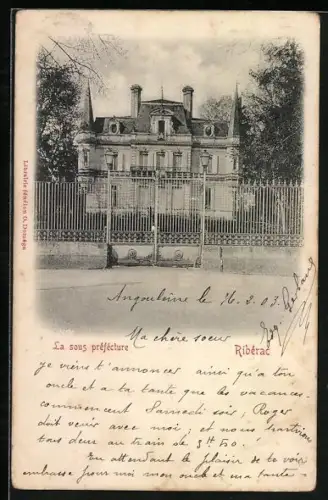 Librairie
La sous préfecture
Ribérac
Angoulême le 16.2.03
Ma chère soeur
je viens t'annoncer ainsi qu'a ton
oncle et a ta tante que les vacances
commencent Samedi soir, Roger
doit venir avec moi; et nous
tous deux au train de 5 Ht 50.
En attendant le plaisir de te voir
embrasse pour moi mon oncle et ma tante